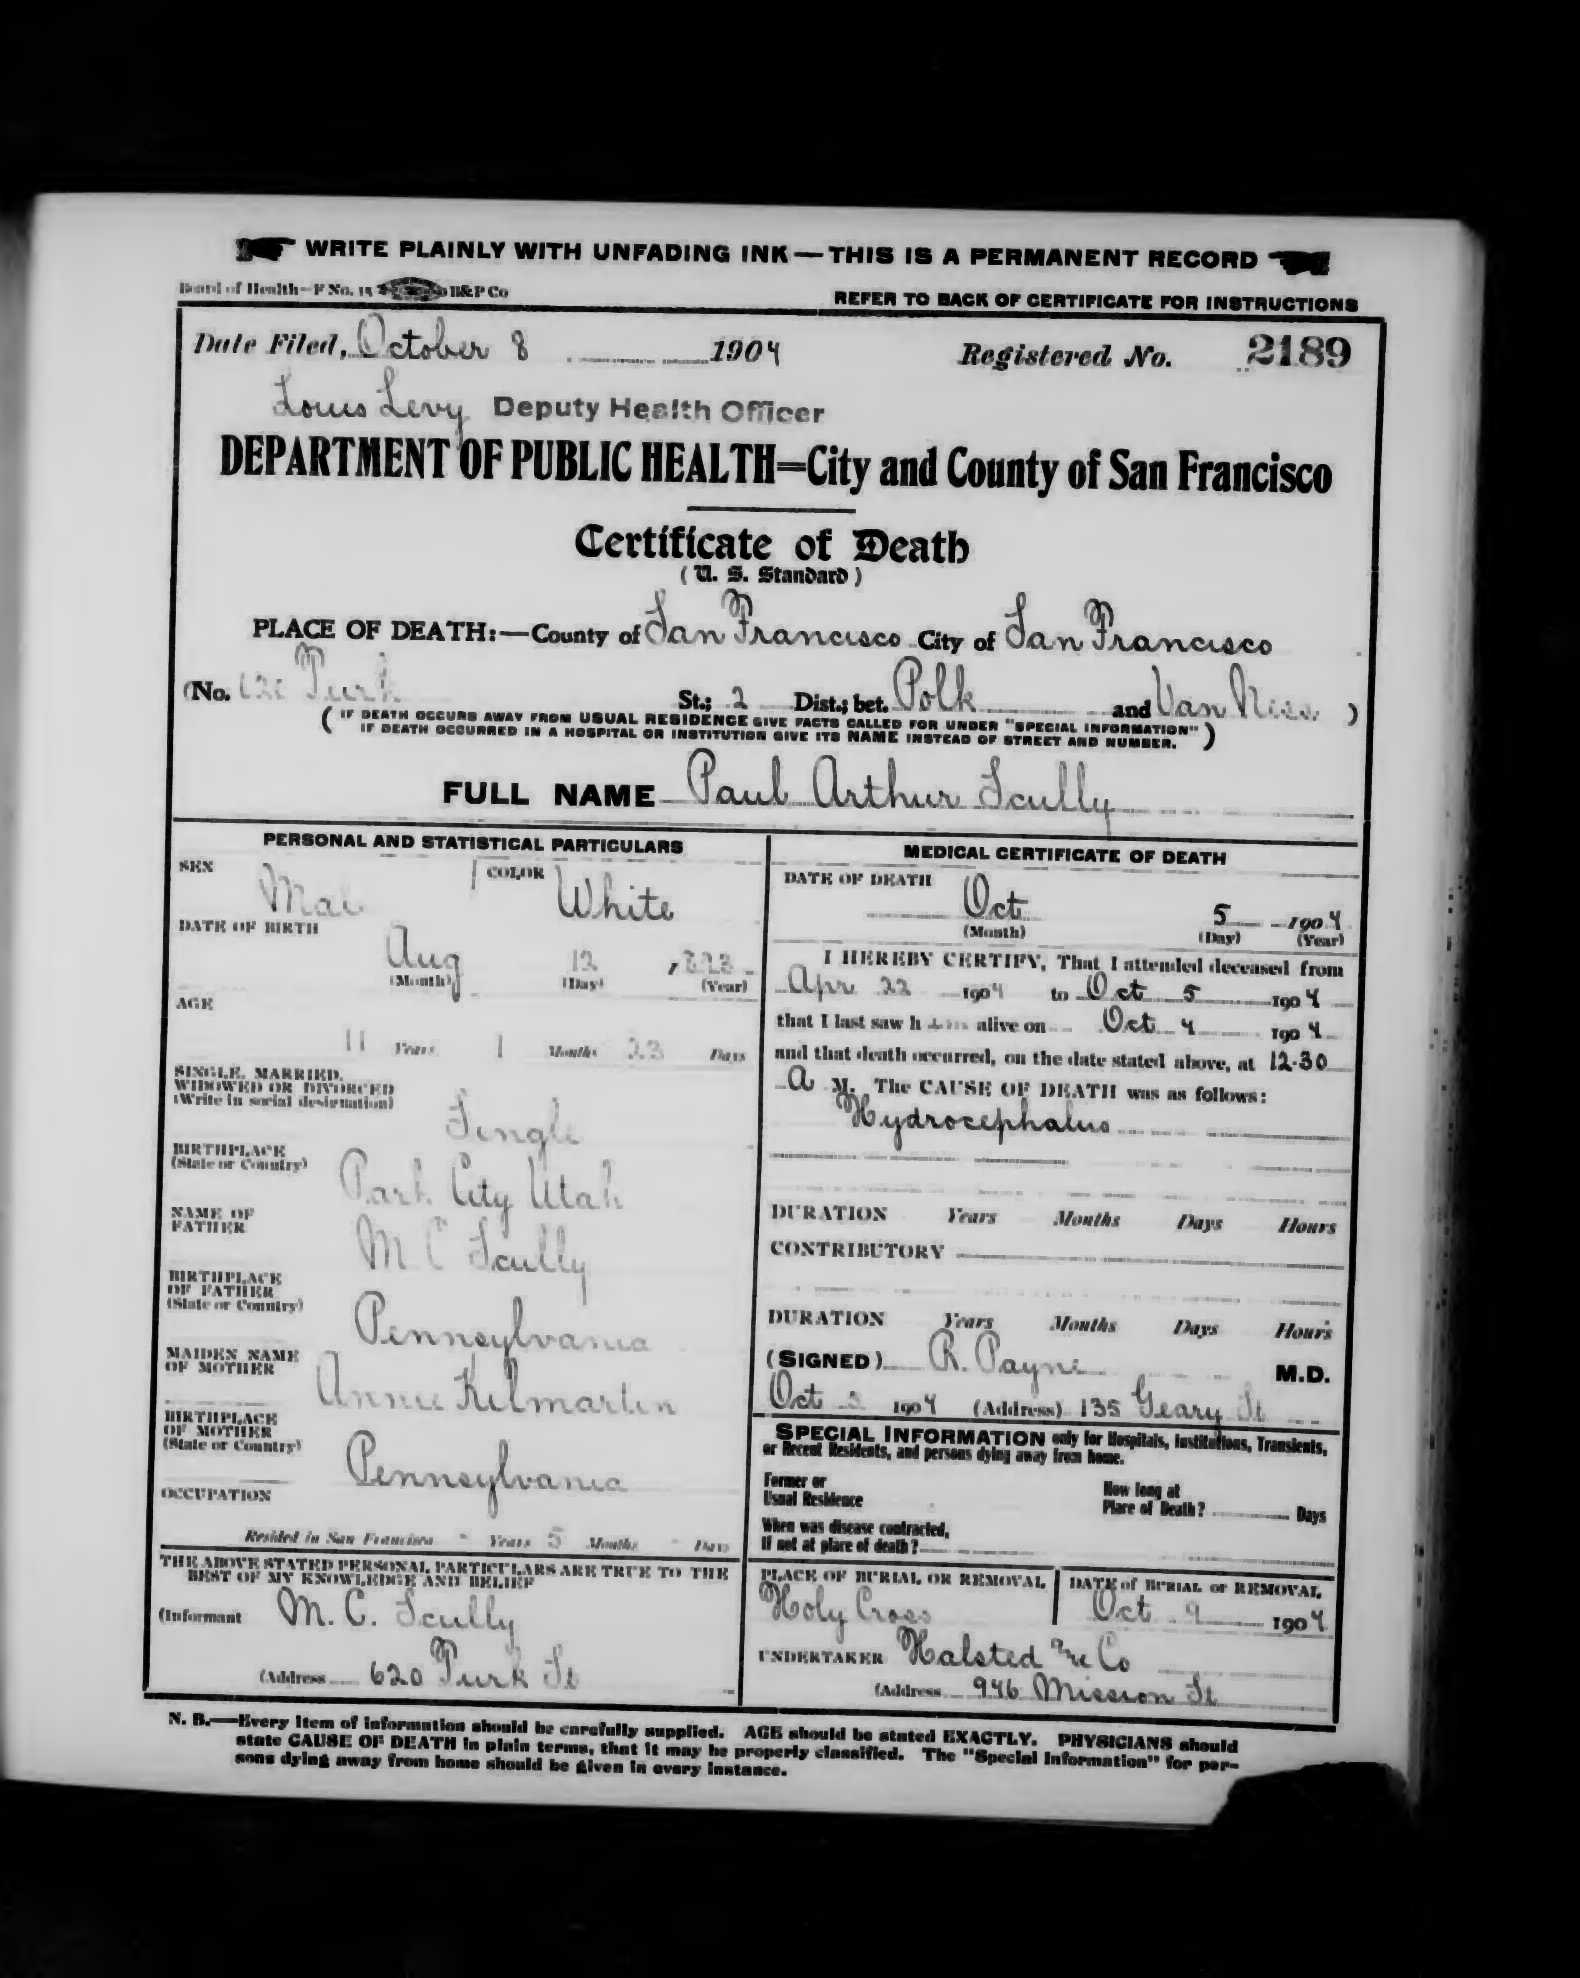 WRITE PLAINLY WITH UNFADING INK — THIS IS A PERMANENT RECORD
Board of Health—F No. 15 B&P Co
REFER TO BACK OF CERTIFICATE FOR INSTRUCTIONS
Date Filed, October 8 1904 Registered No. 2189
Louis Levy Deputy Health Officer
DEPARTMENT OF PUBLIC HEALTH=City and County of San Francisco
Certificate of Death
(U. S. Standard)
PLACE OF DEATH:—County of San Francisco City of San Francisco
(No. Turk St.; 2 Dist.; bet. Polk and Van Ness )
( IF DEATH OCCURS AWAY FROM USUAL RESIDENCE GIVE FACTS CALLED FOR UNDER "SPECIAL INFORMATION"
IF DEATH OCCURRED IN A HOSPITAL OR INSTITUTION GIVE ITS NAME INSTEAD OF STREET AND NUMBER. )
FULL NAME Paul Arthur Scully
PERSONAL AND STATISTICAL PARTICULARS
SEX COLOR White
DATE OF BIRTH
Aug 12
(Month) (Day) (Year)
AGE
11 Years 1 Months 23 Days
SINGLE, MARRIED,
WIDOWED OR DIVORCED
(Write in social designation)
Single
BIRTHPLACE
(State or Country)
Park City Utah
NAME OF
FATHER
M C Scully
BIRTHPLACE
OF FATHER
(State or Country)
Pennsylvania
MAIDEN NAME
OF MOTHER
Annie Kilmartin
BIRTHPLACE
OF MOTHER
(State or Country)
Pennsylvania
OCCUPATION
Resided in San Francisco - Years 5 Months - Days
THE ABOVE STATED PERSONAL PARTICULARS ARE TRUE TO THE
BEST OF MY KNOWLEDGE AND BELIEF
(Informant M. C. Scully
(Address 620 Turk St
MEDICAL CERTIFICATE OF DEATH
DATE OF DEATH
Oct 5 1904
(Month) (Day) (Year)
I HEREBY CERTIFY, That I attended deceased from
Apr 22 1904 to Oct 5 1904
that I last saw him alive on Oct 4 1904
and that death occurred, on the date stated above, at 12.30
A M. The CAUSE OF DEATH was as follows:
Hydrocephalus
DURATION Years Months Days Hours
CONTRIBUTORY
DURATION Years Months Days Hours
(SIGNED) R. Payne M.D.
Oct 1904 (Address) 135 Geary St
SPECIAL INFORMATION only for Hospitals, Institutions, Transients,
or Recent Residents, and persons dying away from home.
Former or
Usual Residence
How long at
Place of Death? Days
When was disease contracted,
If not at place of death?
PLACE OF BURIAL OR REMOVAL
Holy Cross
DATE of BURIAL or REMOVAL
Oct 9 1904
UNDERTAKER Halsted & Co
(Address 946 Mission St
N. B.—Every item of information should be carefully supplied. AGE should be stated EXACTLY. PHYSICIANS should
state CAUSE OF DEATH in plain terms, that it may be properly classified. The "Special Information" for per-
sons dying away from home should be given in every instance.